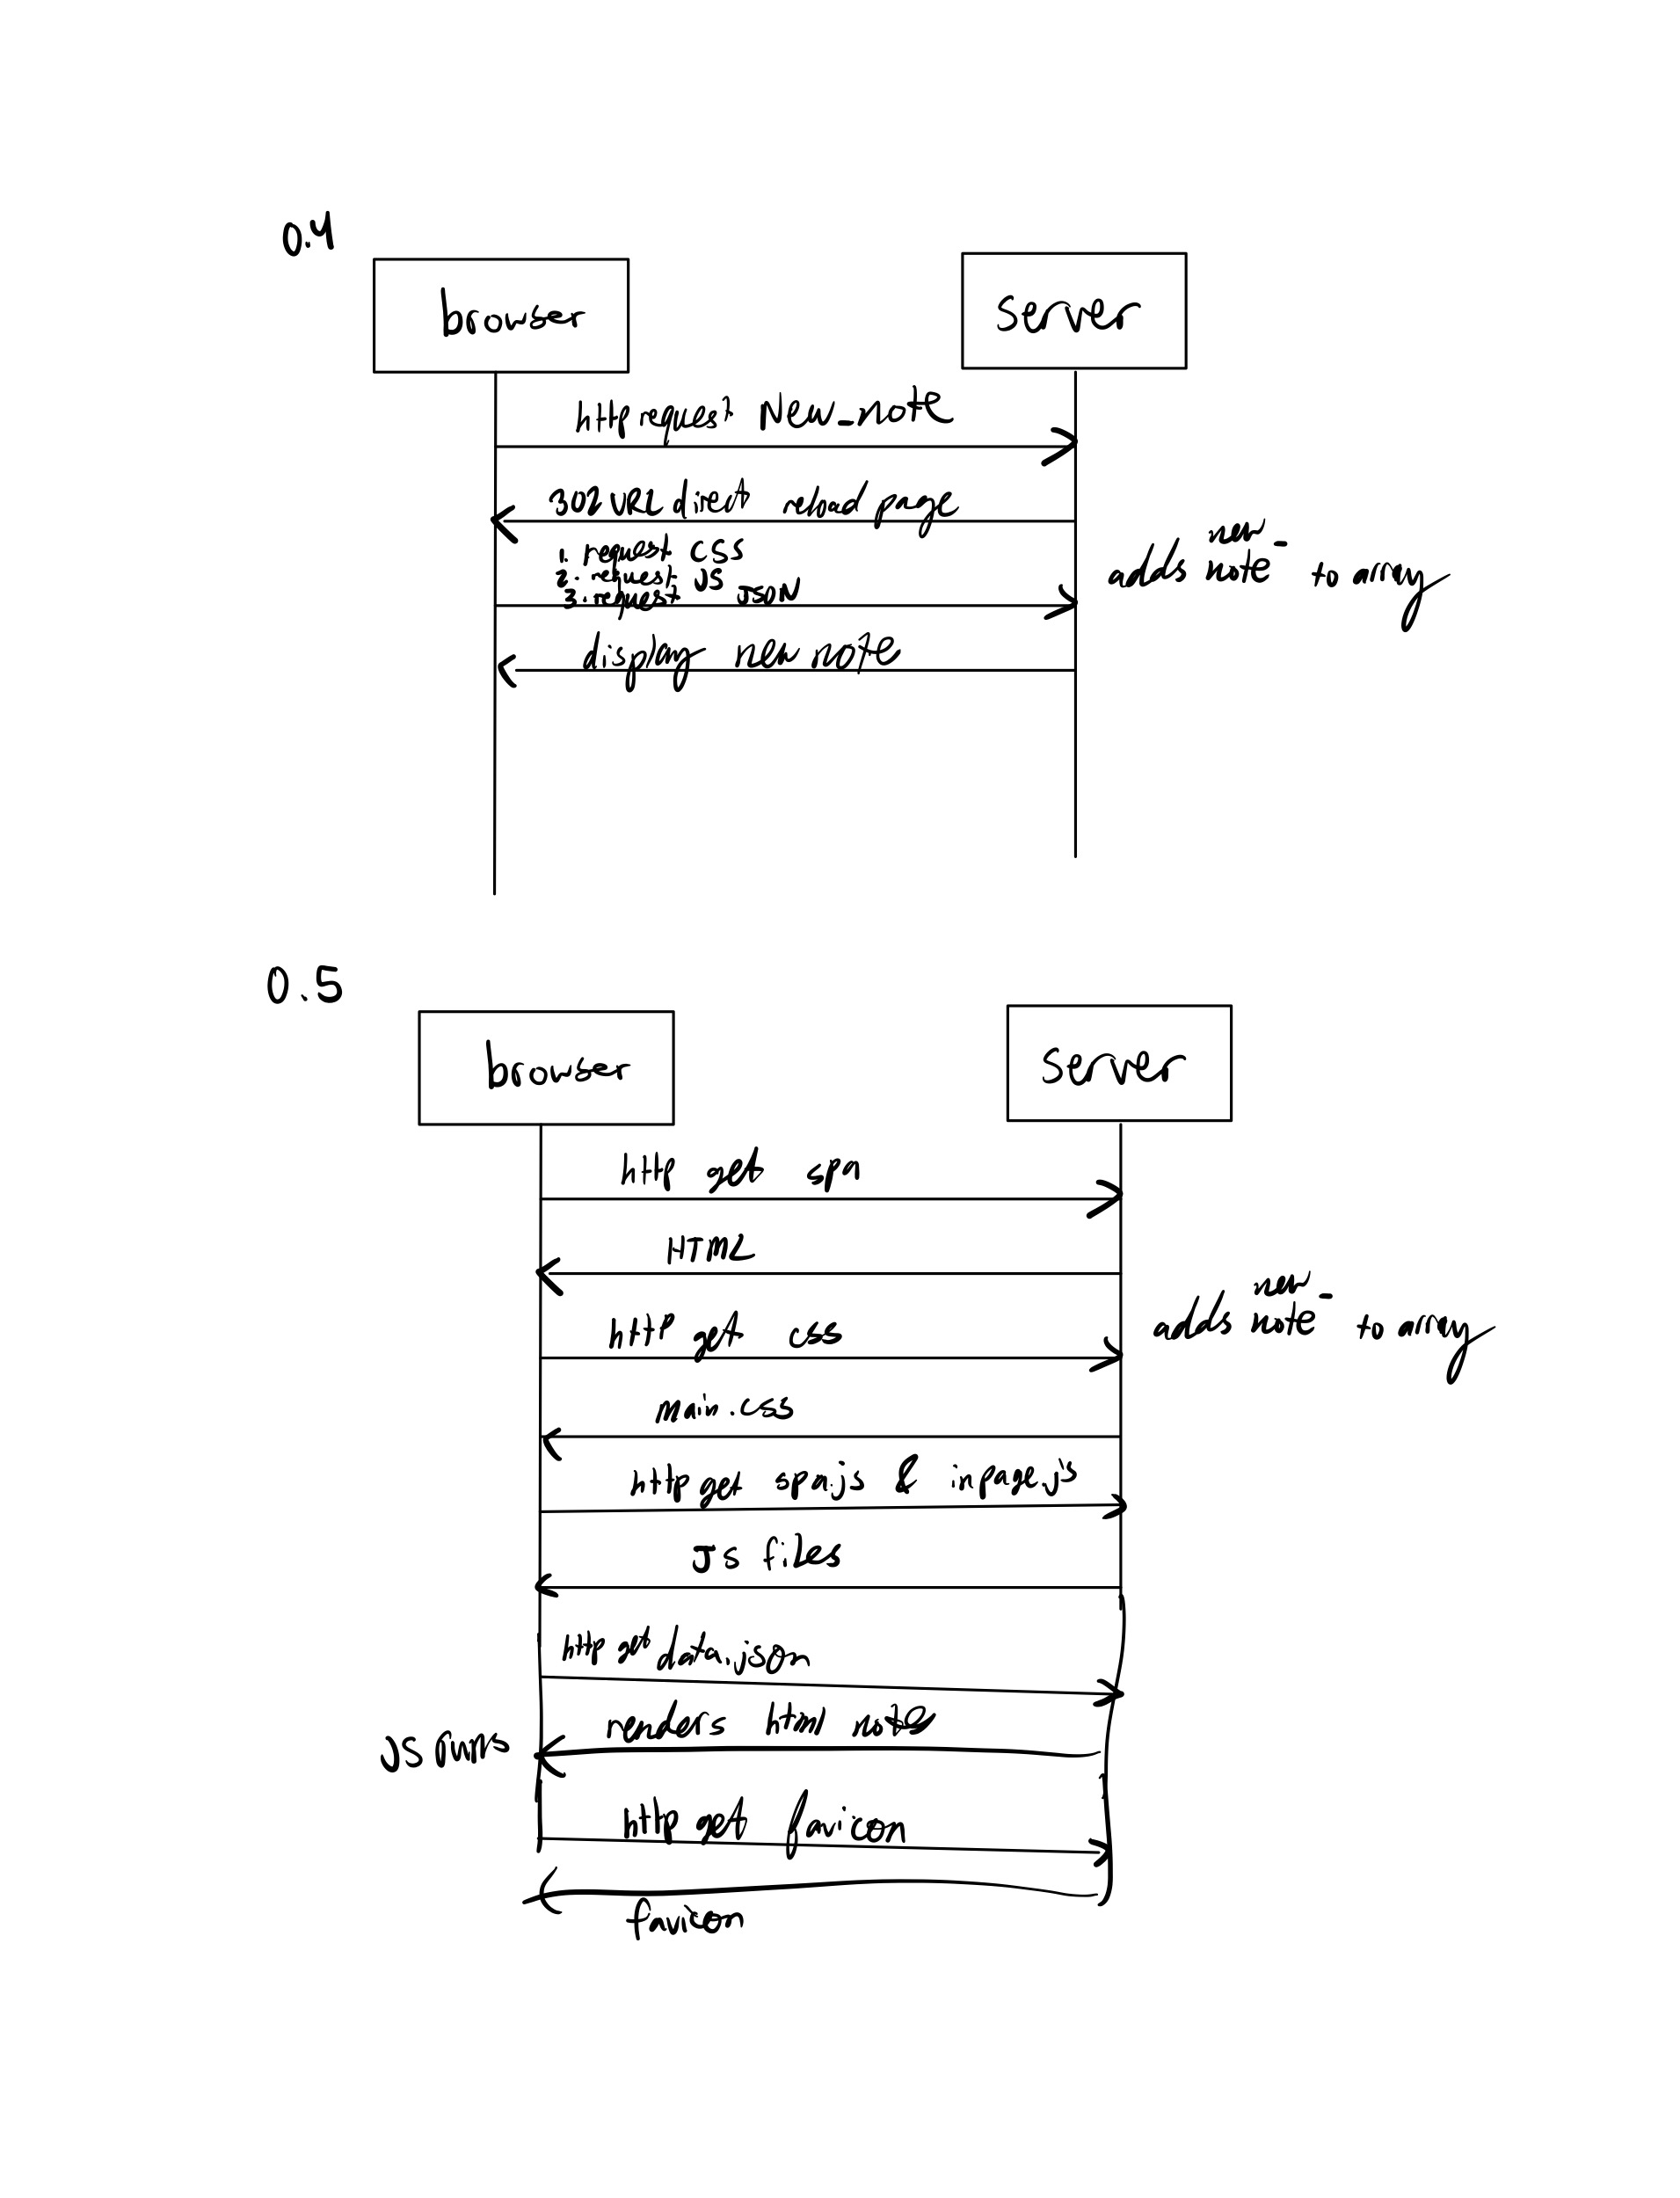 0.4
browser
server
http request New_note
302 URL direct reload page
1. request css
2. request JS
3. request JSON
adds new_note to array
display new note
0.5
browser
server
http get spa
HTML
http get css
adds new_note to array
main.css
http get spa.js & inpage.js
JS files
http get data.json
renders html note
JS runs
http get favicon
favicon